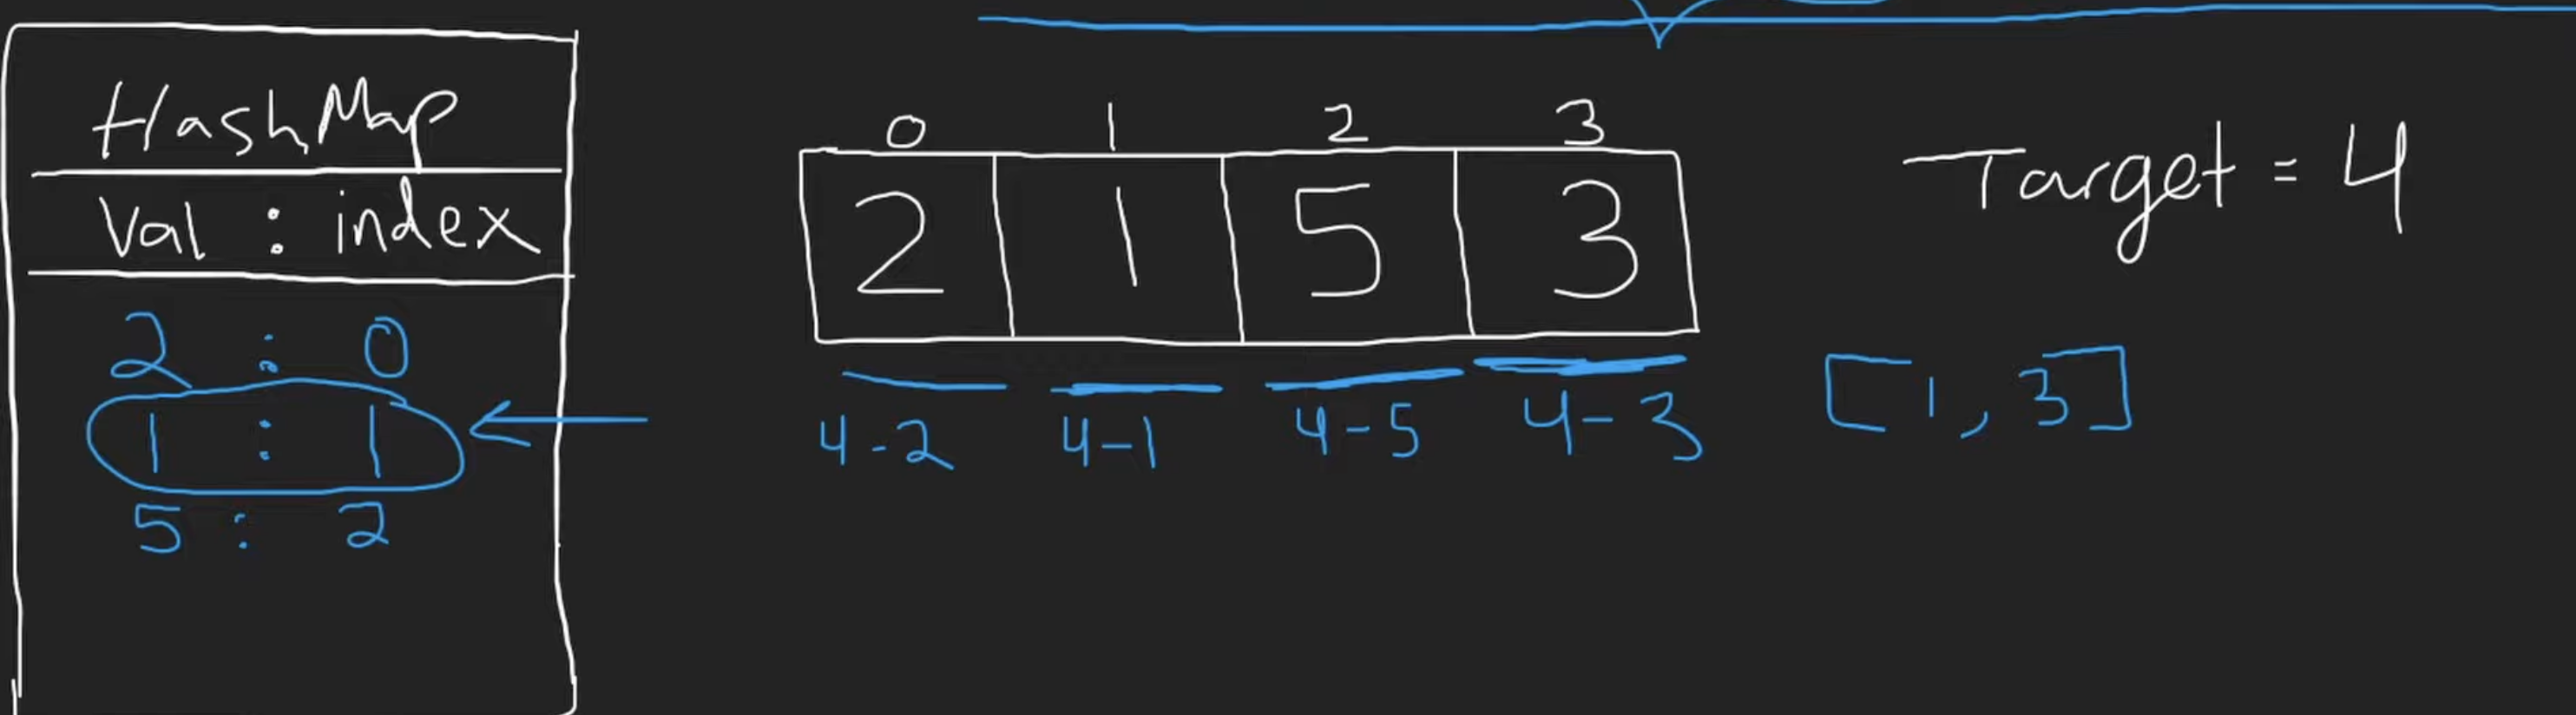 HashMap
Val : index
2 : 0
1 : 1
5 : 2
0 1 2 3
2 1 5 3
4-2 4-1 4-5 4-3
Target = 4
[1, 3]